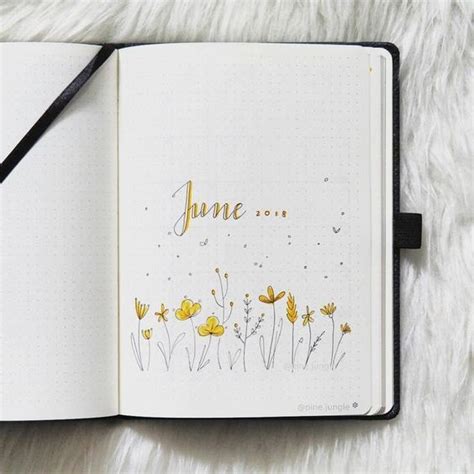 June 2018
@pine.jungle